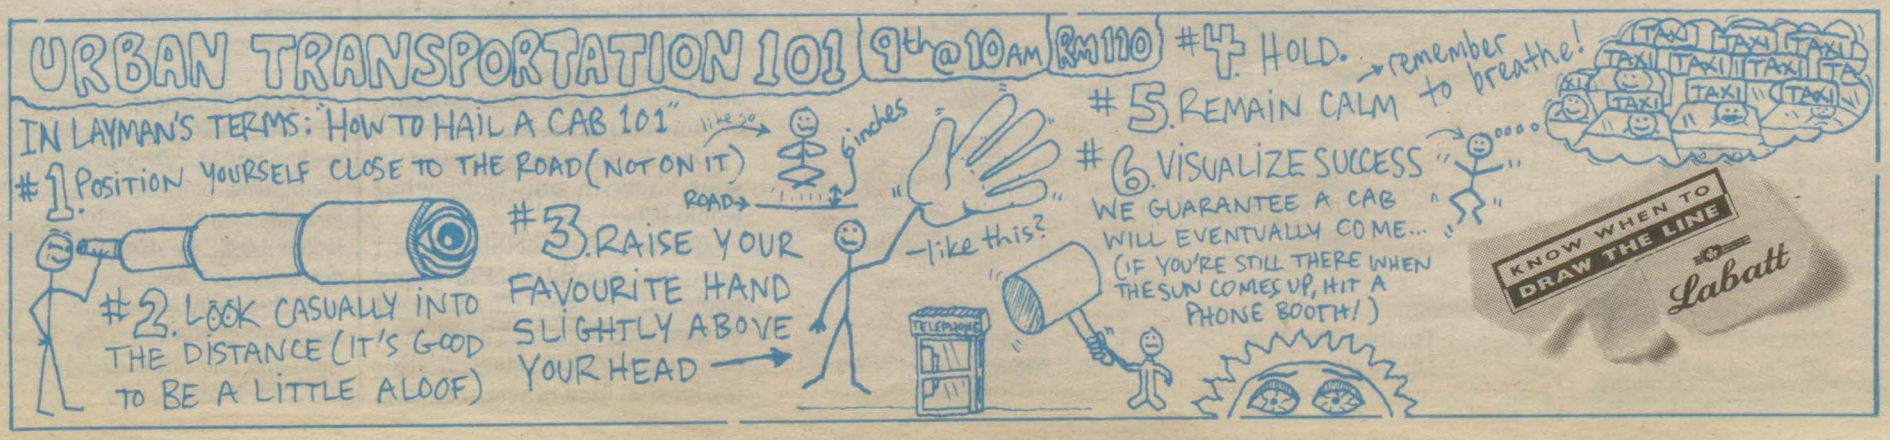 URBAN TRANSPORTATION 101 9th @ 10 AM RM 110
IN LAYMAN'S TERMS: "HOW TO HAIL A CAB 101"
#1. POSITION YOURSELF CLOSE TO THE ROAD (NOT ON IT)
like so
6 inches
ROAD
#2. LOOK CASUALLY INTO
THE DISTANCE (IT'S GOOD
TO BE A LITTLE ALOOF)
#3. RAISE YOUR
FAVOURITE HAND
SLIGHTLY ABOVE
YOUR HEAD
-like this?
TELEPHONE
#4. HOLD.
#5. REMAIN CALM
remember
to breathe!
#6. VISUALIZE SUCCESS
WE GUARANTEE A CAB
WILL EVENTUALLY COME...
(IF YOU'RE STILL THERE WHEN
THE SUN COMES UP, HIT A
PHONE BOOTH!)
TAXI TAXI TAXI
TAXI TAXI TAXI TA
XI TAXI TAXI TAXI
KNOW WHEN TO
DRAW THE LINE
Labatt